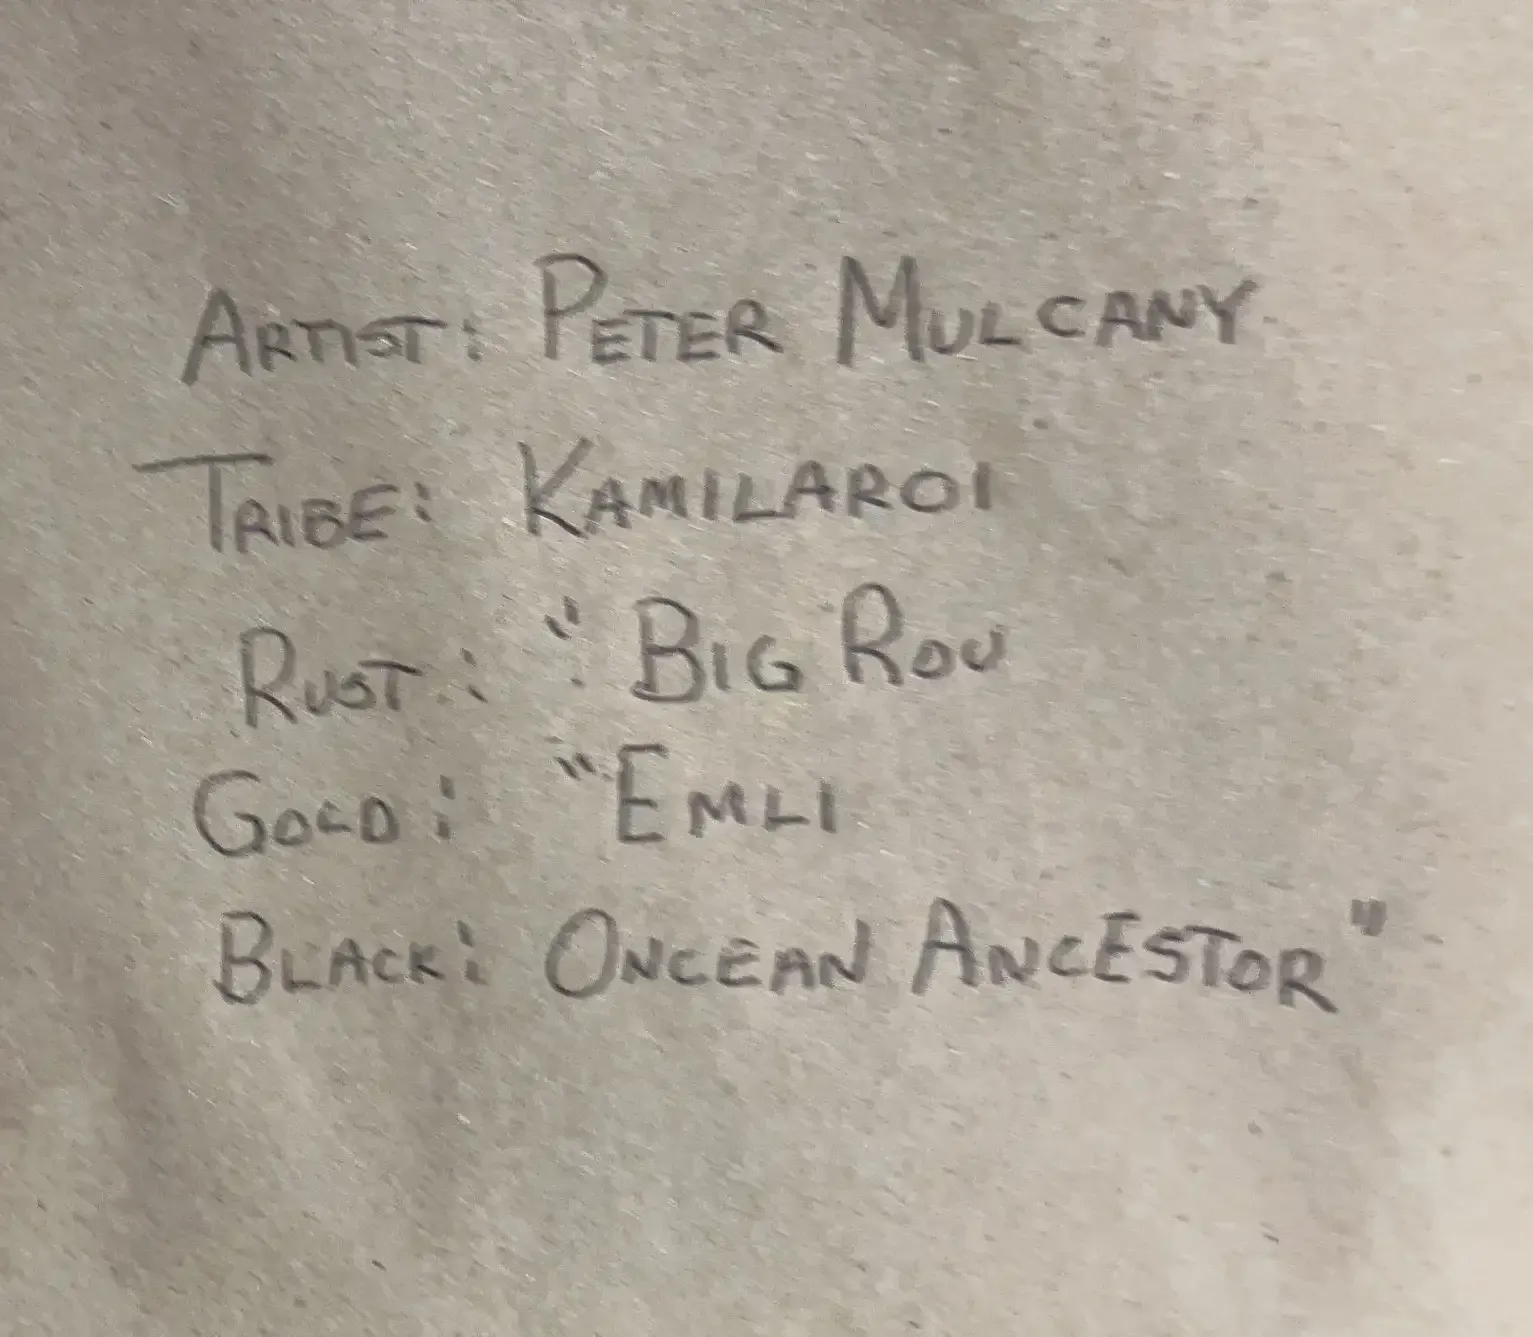 ARTIST: PETER MULCANY
TRIBE: KAMILAROI
RUST: "BIG ROU
GOLD: "EMLI
BLACK: ONCEAN ANCESTOR"